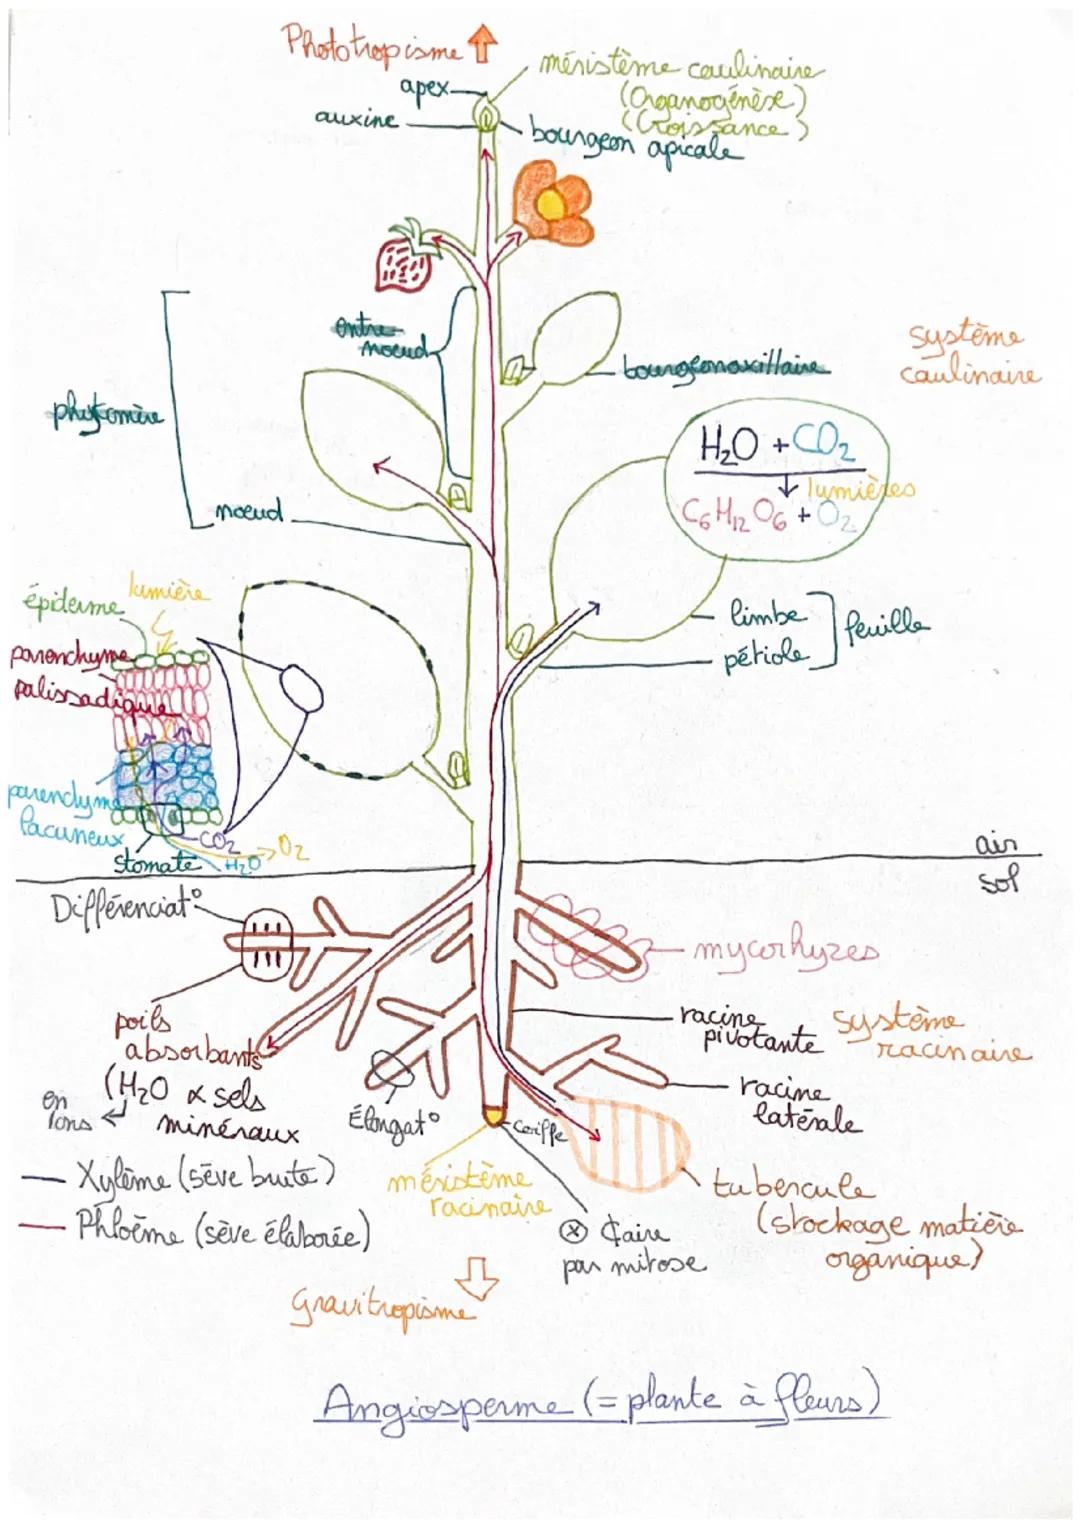 Phototropisme
méristème caulinaire
(Organogénèse)
(Croissance)
apex
auxine
bourgeon apicale
entre-
noeud
bourgeon axillaire
système
caulinaire
phytomère
noeud
H₂O + CO₂
lumières
C₆H₁₂O₆ + O₂
lumière
épiderme
parenchyme
palissadique
limbe
pétiole
feuille
parenchyme
lacuneux
stomate
CO₂
H₂O
O₂
air
sol
Différenciat°
mycorhyzes
poils
absorbants
(H₂O & sels
minéraux
en
ions
Élongat°
racine
pivotante
système
racinaire
racine
latérale
Coiffe
Xylème (sève brute)
Phloème (sève élaborée)
méristème
racinaire
tubercule
(stockage matière
organique)
ⓧ ¢aire
par mitose
Gravitropisme
Angiosperme (= plante à fleurs)